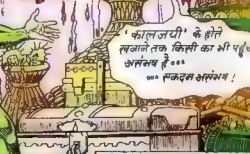 'कालजयी' के होते
खजाने तक किसी का भी पहुं
असंभव है...
... एकदम असंभव!